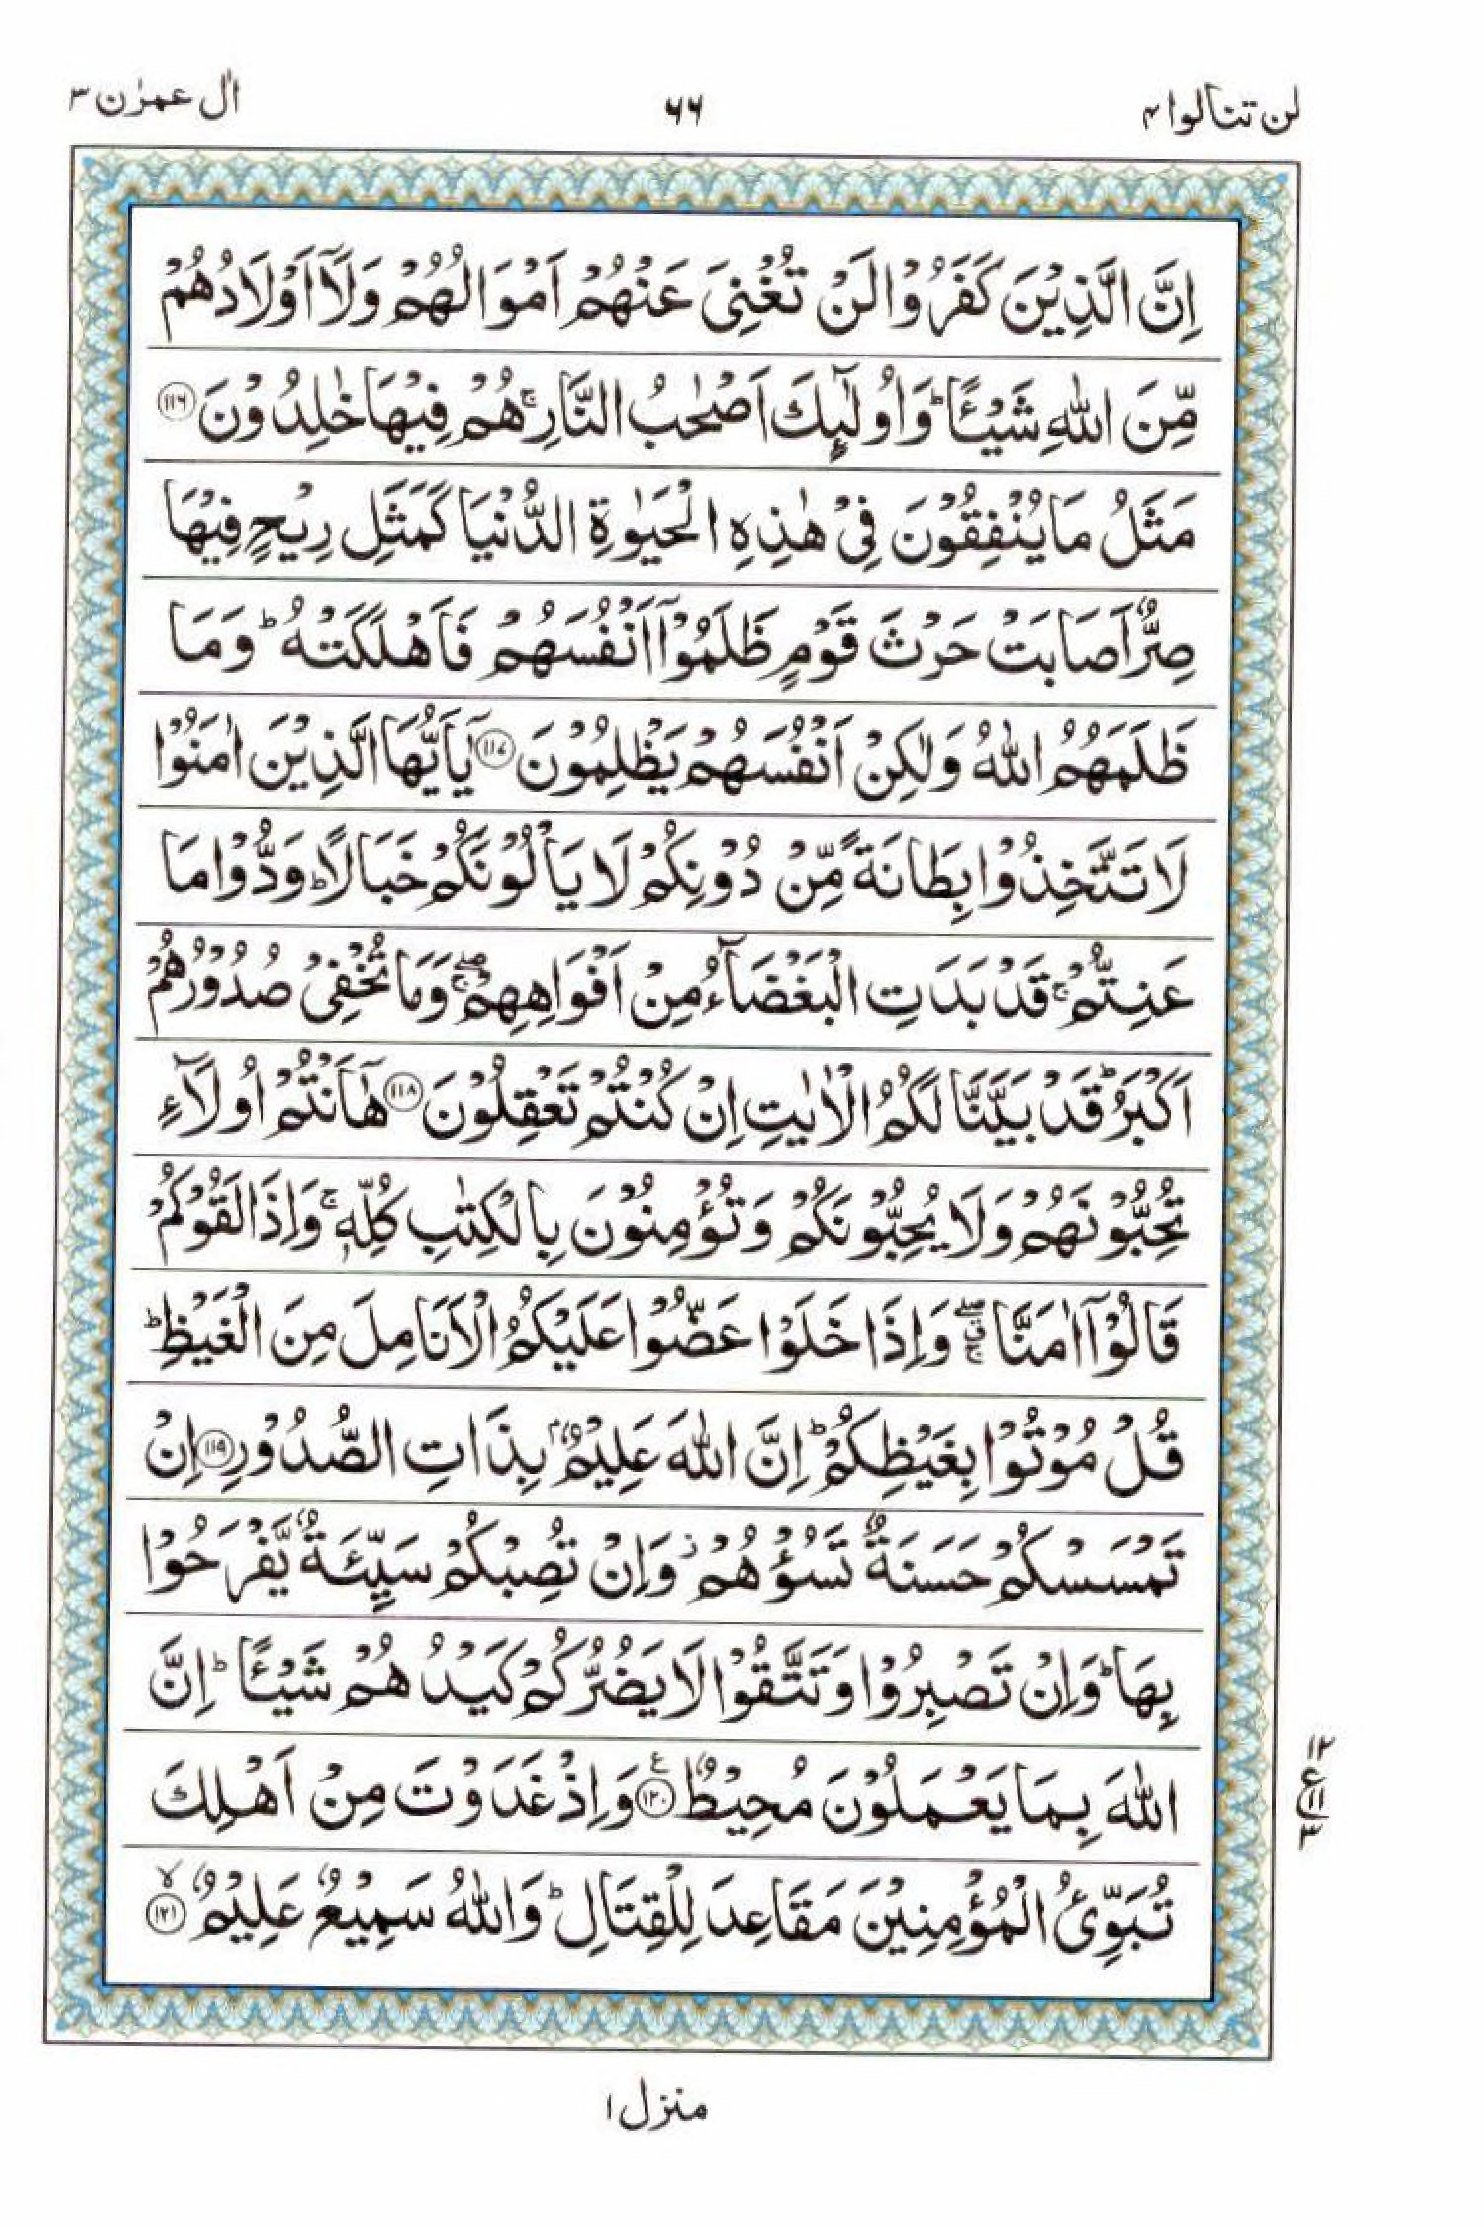 لن تنالوا ۴
۶۶
اٰل عمرٰن ۳
اِنَّ الَّذِيْنَ كَفَرُوْا لَنْ تُغْنِىَ عَنْهُمْ اَمْوَالُهُمْ وَلَآ اَوْلَادُهُمْ
مِّنَ اللّٰهِ شَيْـًٔا ؕ وَاُولٰٓئِكَ اَصْحٰبُ النَّارِ ۚ هُمْ فِيْهَا خٰلِدُوْنَ ۝۱۱۶
مَثَلُ مَا يُنْفِقُوْنَ فِىْ هٰذِهِ الْحَيٰوةِ الدُّنْيَا كَمَثَلِ رِيْحٍ فِيْهَا
صِرٌّ اَصَابَتْ حَرْثَ قَوْمٍ ظَلَمُوْٓا اَنْفُسَهُمْ فَاَهْلَكَتْهُ ؕ وَمَا
ظَلَمَهُمُ اللّٰهُ وَلٰكِنْ اَنْفُسَهُمْ يَظْلِمُوْنَ ۝۱۱۷ يٰٓاَيُّهَا الَّذِيْنَ اٰمَنُوْا
لَا تَتَّخِذُوْا بِطَانَةً مِّنْ دُوْنِكُمْ لَا يَاْلُوْنَكُمْ خَبَالًا ؕ وَدُّوْا مَا
عَنِتُّمْ ۚ قَدْ بَدَتِ الْبَغْضَآءُ مِنْ اَفْوَاهِهِمْ ۖۚ وَمَا تُخْفِىْ صُدُوْرُهُمْ
اَكْبَرُ ؕ قَدْ بَيَّنَّا لَكُمُ الْاٰيٰتِ اِنْ كُنْتُمْ تَعْقِلُوْنَ ۝۱۱۸ هٰٓاَنْتُمْ اُولَآءِ
تُحِبُّوْنَهُمْ وَلَا يُحِبُّوْنَكُمْ وَتُؤْمِنُوْنَ بِالْكِتٰبِ كُلِّهٖ ۚ وَاِذَا لَقُوْكُمْ
قَالُوْٓا اٰمَنَّا ۖۗۚ وَاِذَا خَلَوْا عَضُّوْا عَلَيْكُمُ الْاَنَامِلَ مِنَ الْغَيْظِ ؕ
قُلْ مُوْتُوْا بِغَيْظِكُمْ ؕ اِنَّ اللّٰهَ عَلِيْمٌۢ بِذَاتِ الصُّدُوْرِ ۝۱۱۹ اِنْ
تَمْسَسْكُمْ حَسَنَةٌ تَسُؤْهُمْ ز وَاِنْ تُصِبْكُمْ سَيِّئَةٌ يَّفْرَحُوْا
بِهَا ؕ وَاِنْ تَصْبِرُوْا وَتَتَّقُوْا لَا يَضُرُّكُمْ كَيْدُهُمْ شَيْـًٔا ؕ اِنَّ
اللّٰهَ بِمَا يَعْمَلُوْنَ مُحِيْطٌ ۝۱۲۰ ع وَاِذْ غَدَوْتَ مِنْ اَهْلِكَ
تُبَوِّئُ الْمُؤْمِنِيْنَ مَقَاعِدَ لِلْقِتَالِ ؕ وَاللّٰهُ سَمِيْعٌ عَلِيْمٌ ۝۱۲۱ لا
۱۲
ع
۱۱
۳
منزل ۱